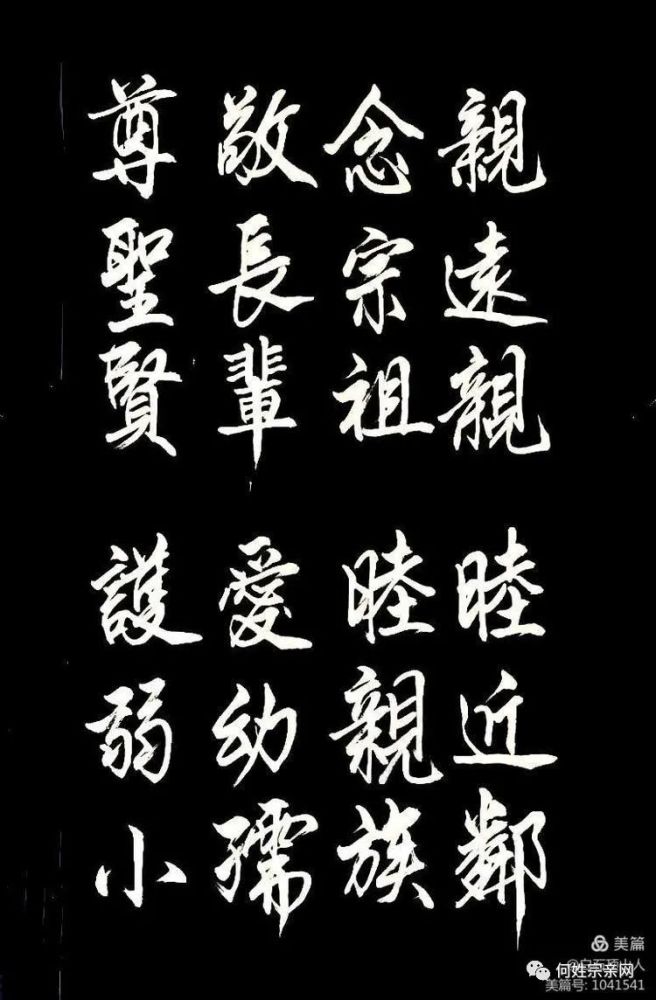 親遠親 睦近鄰
念宗祖 睦親族
敬長輩 愛幼孺
尊聖賢 護弱小
美篇
何姓宗亲网
美篇号: 1041541